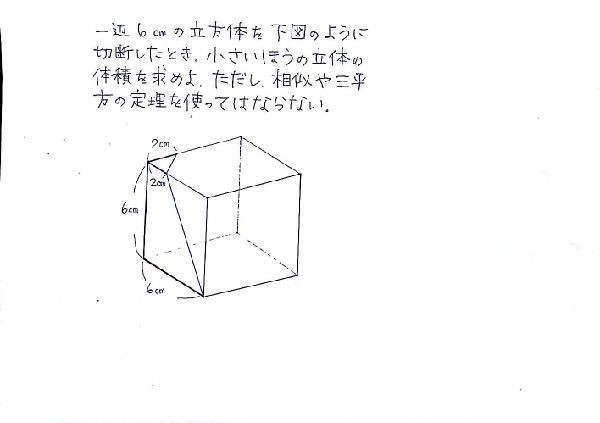 一辺6cmの立方体を下図のように
切断したとき、小さいほうの立体の
体積を求めよ。ただし、相似や三平
方の定理を使ってはならない。
2cm
2cm
6cm
6cm